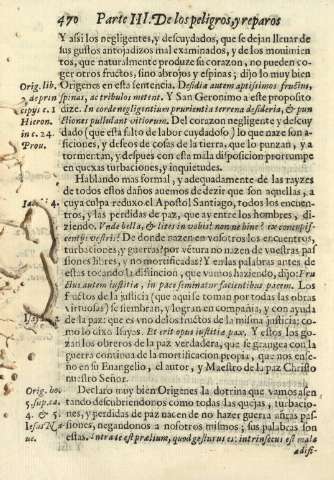 470 Parte III. De los peligros, y reparos
Y assi los negligentes, y descuydados, que se dejan lleuar de
sus gustos antojadizos mal examinados, y de los mouimien
tos, que naturalmente produze su corazon, no pueden co-
ger otros fructos, sino abrojos y espinas; dijo lo muy bien
Orig. lib. Origenes en esta sentencia. Desidiæ autem aptissimos fructus,
de prin spinas, ac tribulos mitent. Y San Geronimo a este proposito
cipys c. 1 dize. In corde negligentium pruriunt a terrena desideria, & pun
Hieron. ctiones pullulant vitiorum. Del corazon negligente y descuy
in c. 24. dado (que esta falto de labor cuydadoso) lo que naze son a-
Prou. ficiones, y deseos de cosas de la tierra, que lo punzan, y a
tormentan, y despues con esta mala disposicion prorrumpe
en quexas turbaciones, y inquietudes.
Hablando mas formal, y adequadamente de las rayzes
de todos estos daños auemos de dezir que son aquellas, a
4. cuya culpa reduxo el Apostol Santiago, todos los encuen
tros, y las perdidas de paz, que ay entre los hombres, di-
ziendo. Vnde bella, & lites in vobis? non ne hinc? ex concupis
centijs vestris? De donde nazen en vosotros los encuentros,
turbaciones, y guerras? por vētura no nazen de vuestras pas
siones libres, y no mortificadas? Y en las palabras antes de
estas tocando la distincion, que vamos haziendo, dijo: Fru
ctus autem iustitiæ, in pace seminatur facientibus pacem. Los
fructos de la justicia (que aqui se toman por todas las obras
virtuosas) se siembran, y logran en compañia, y con ayuda
de la paz: que es vno de los fructos de la misma justicia; co-
mo lo dixo Isayas. Et erit opus iustitiæ pax. Y estos los go-
zan los obreros de la paz verdadera, que se grangea con la
guerra continua de la mortificacion propia, que nos ense-
ño en su Euangelio, el autor, y Maestro de la paz Christo
nuestro Señor.
Orig. ho. Declaro muy bien Origenes la dotrina que vamos asen
5. sup. ca. tando descubriendonos como todas las quejas, turbacio-
4. & 5. nes, y perdidas de paz nacen de no hazer guerra a nr̄as pas-
Iesu Na siones, negandonos a nosotros mismos; sus palabras son
ue. estas. Intra te est prælium, quod gesturus es: intrinsecus est mala
ædifi-